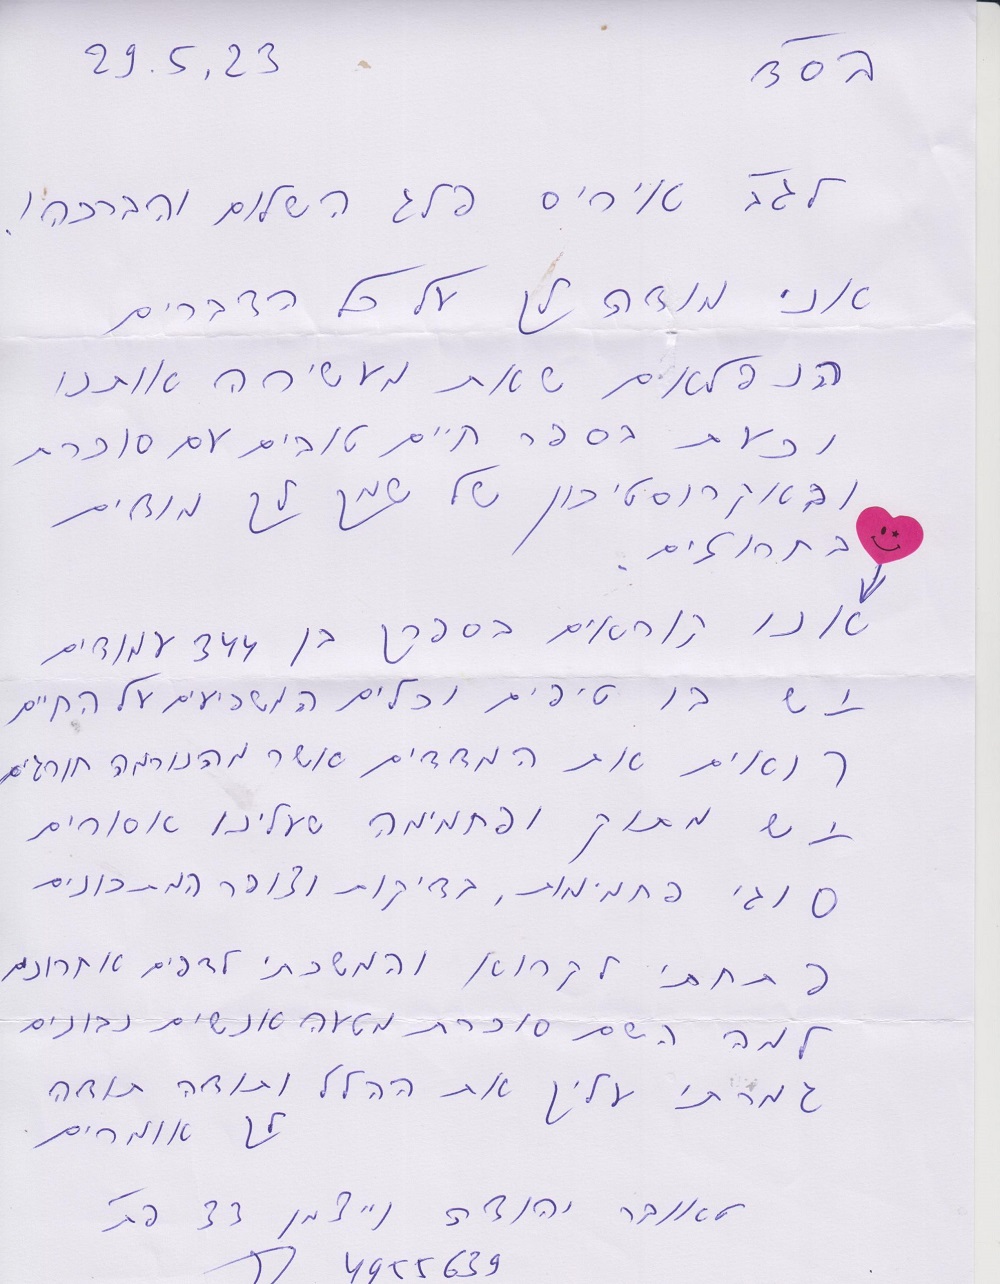 בס"ד 29.5.23
לגב' איריס פלג השלום והברכה!
אני מודה לך על כל הדברים
הנפלאים שאת מעשירה אותנו
וכעת בספר חיים טובים עם סוכרת
ובאקרוסטיכון של שמך לך מודים
בחרוזים.
אנו קוראים בספרך בן 344 עמודים
יש בו טיפים וכלים המשפיעים על החיים
רואים את המדדים אשר מהנורמה חורגים
יש מתוק ופחמימה שעלינו אסורים
סוגי פחמימות, בדיקות וצופר המתכונים
פתחתי לקרוא והמשכתי לדפים אחרונים
למה השם סוכרת מטעה אנשים נבונים
גמרתי עליך את ההלל ותודה תודה
לך אומרים
טאובר יהודה ויצמן 33 פת
4955639